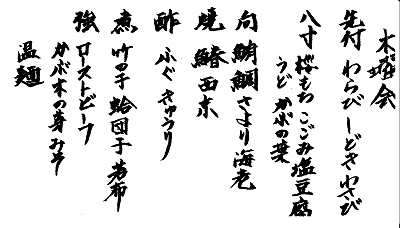 木曜会
先付 わらび しどき わさび
八寸 桜もち こごみ 塩豆腐
うど かぶの葉
向 鮪 鯛 さより 海老
焼 鰆西京
酢 ふぐ きゅうり
煮 竹の子 蛤団子 若布
強 ローストビーフ
かぶ 木の芽みそ
温麺